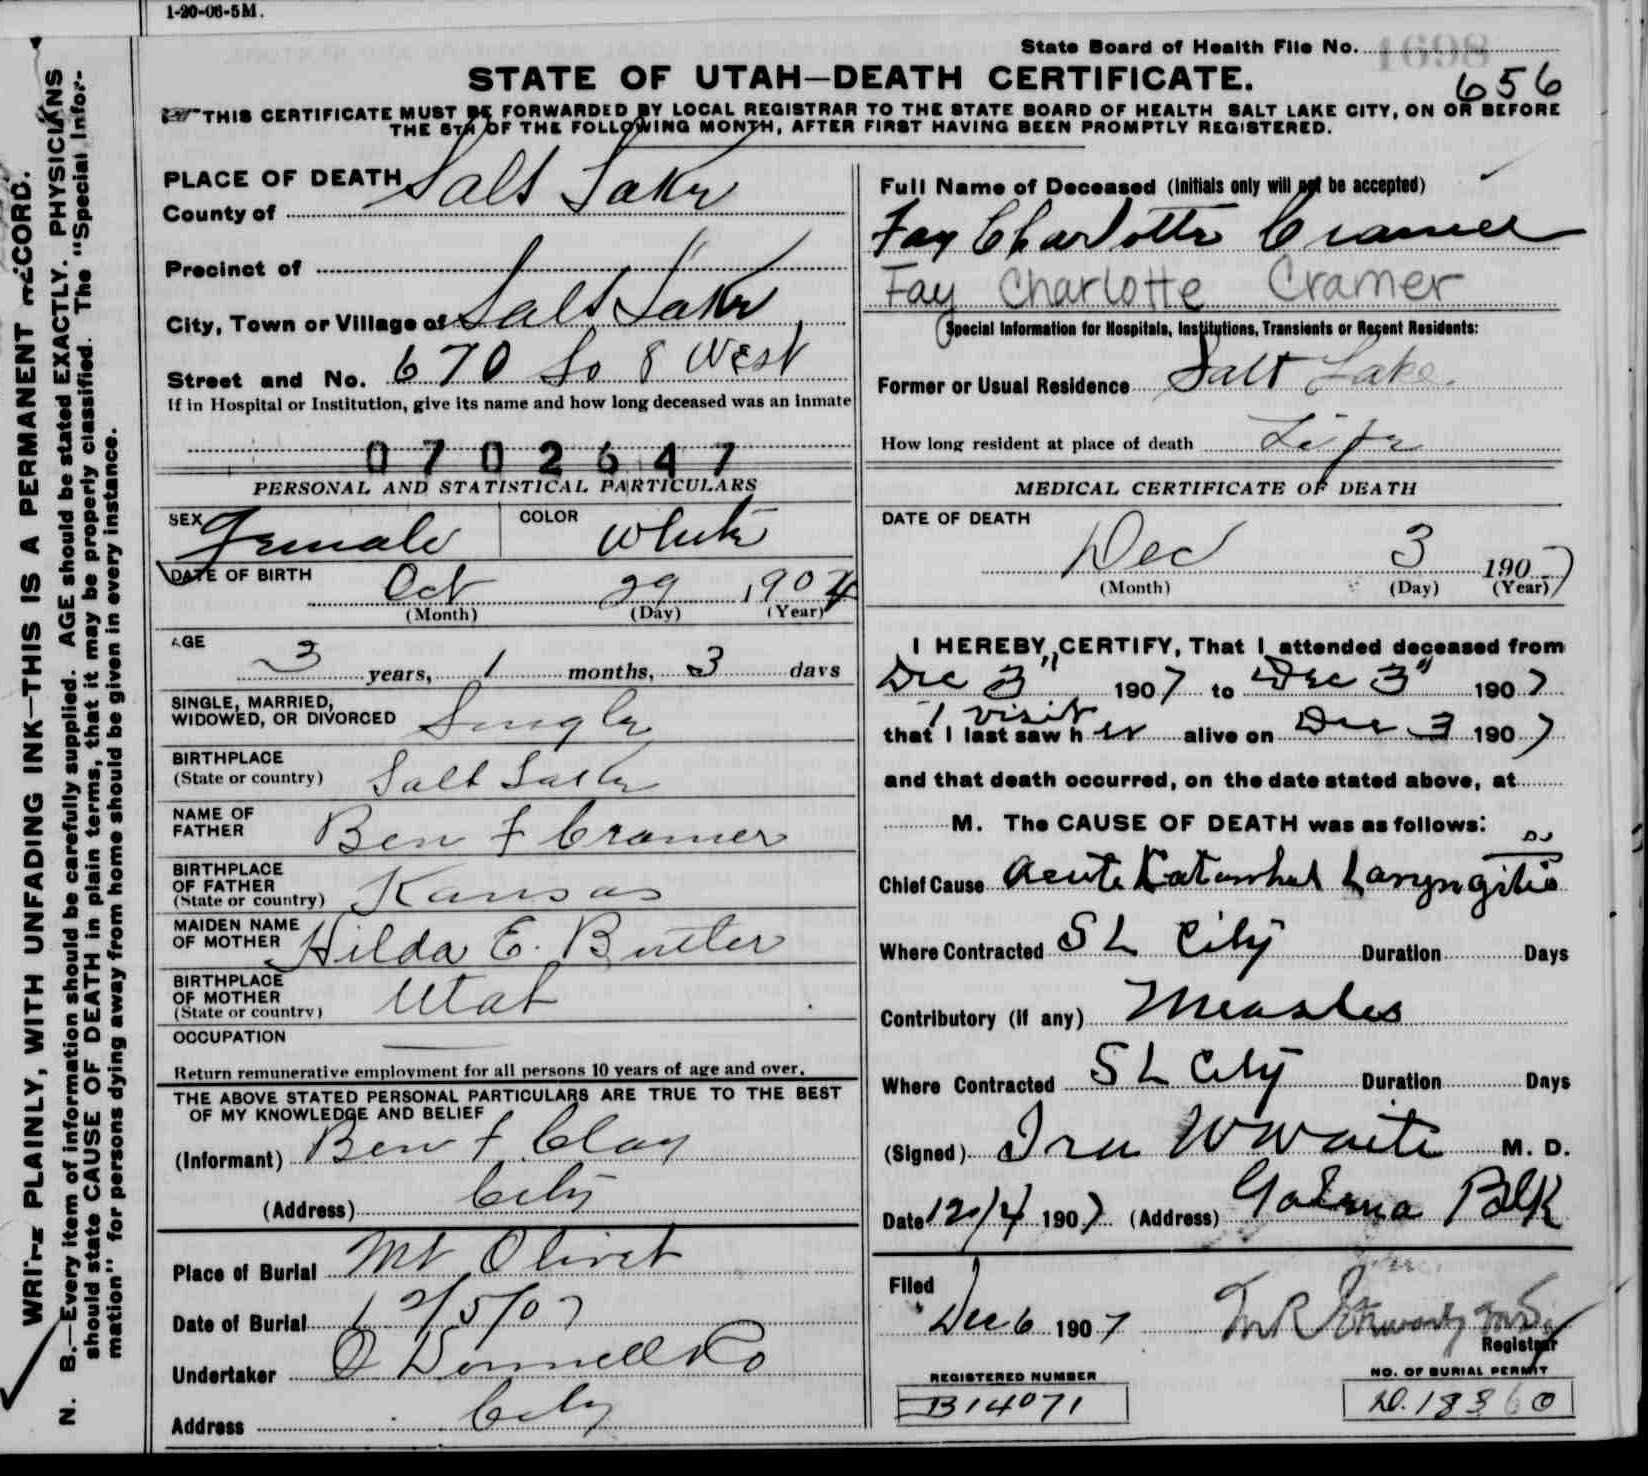 1-20-06-5M.
State Board of Health File No. 1698
STATE OF UTAH—DEATH CERTIFICATE.
656
THIS CERTIFICATE MUST BE FORWARDED BY LOCAL REGISTRAR TO THE STATE BOARD OF HEALTH SALT LAKE CITY, ON OR BEFORE
THE 5TH OF THE FOLLOWING MONTH, AFTER FIRST HAVING BEEN PROMPTLY REGISTERED.
WRITE PLAINLY, WITH UNFADING INK—THIS IS A PERMANENT RECORD.
N. B.—Every item of information should be carefully supplied. AGE should be stated EXACTLY. PHYSICIANS
should state CAUSE OF DEATH in plain terms, that it may be properly classified. The "Special Infor-
mation" for persons dying away from home should be given in every instance.
PLACE OF DEATH
County of Salt Lake
Precinct of "
City, Town or Village of Salt Lake
Street and No. 670 So 8 West
If in Hospital or Institution, give its name and how long deceased was an inmate
0702647
PERSONAL AND STATISTICAL PARTICULARS
SEX Female COLOR White
DATE OF BIRTH Oct 29 1904
(Month) (Day) (Year)
AGE
3 years, 1 months, 3 days
SINGLE, MARRIED,
WIDOWED, OR DIVORCED Single
BIRTHPLACE
(State or country) Salt Lake
NAME OF
FATHER Ben F Cramer
BIRTHPLACE
OF FATHER
(State or country) Kansas
MAIDEN NAME
OF MOTHER Hilda E. Butler
BIRTHPLACE
OF MOTHER
(State or country) Utah
OCCUPATION
Return remunerative employment for all persons 10 years of age and over.
THE ABOVE STATED PERSONAL PARTICULARS ARE TRUE TO THE BEST
OF MY KNOWLEDGE AND BELIEF
(Informant) Ben F Clay
(Address) City
Place of Burial Mt Olivet
Date of Burial 12/5/07
Undertaker O Donnell & Co
Address City
Full Name of Deceased (Initials only will not be accepted)
Fay Charlotte Cramer
Fay Charlotte Cramer
Special Information for Hospitals, Institutions, Transients or Recent Residents:
Former or Usual Residence Salt Lake.
How long resident at place of death Life
MEDICAL CERTIFICATE OF DEATH
DATE OF DEATH
Dec 3 1907
(Month) (Day) (Year)
I HEREBY CERTIFY, That I attended deceased from
Dec 3" 1907 to Dec 3" 1907
1 visit
that I last saw her alive on Dec 3 1907
and that death occurred, on the date stated above, at
M. The CAUSE OF DEATH was as follows:
Chief Cause Acute Katarrhal Laryngitis
Where Contracted S L City Duration Days
Contributory (if any) Measles
Where Contracted S L City Duration Days
(Signed) Ira W Waite M. D.
Date 12/4 1907 (Address) Galena Blk
Filed
Dec 6 1907
Registrar
REGISTERED NUMBER
B14071
NO. OF BURIAL PERMIT
D.18360